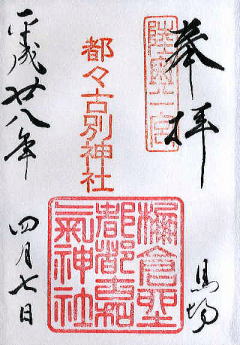 奉拝
馬場
陸奥一宮
都々古別神社
都都古和
氣神社
平成廿八年
四月七日